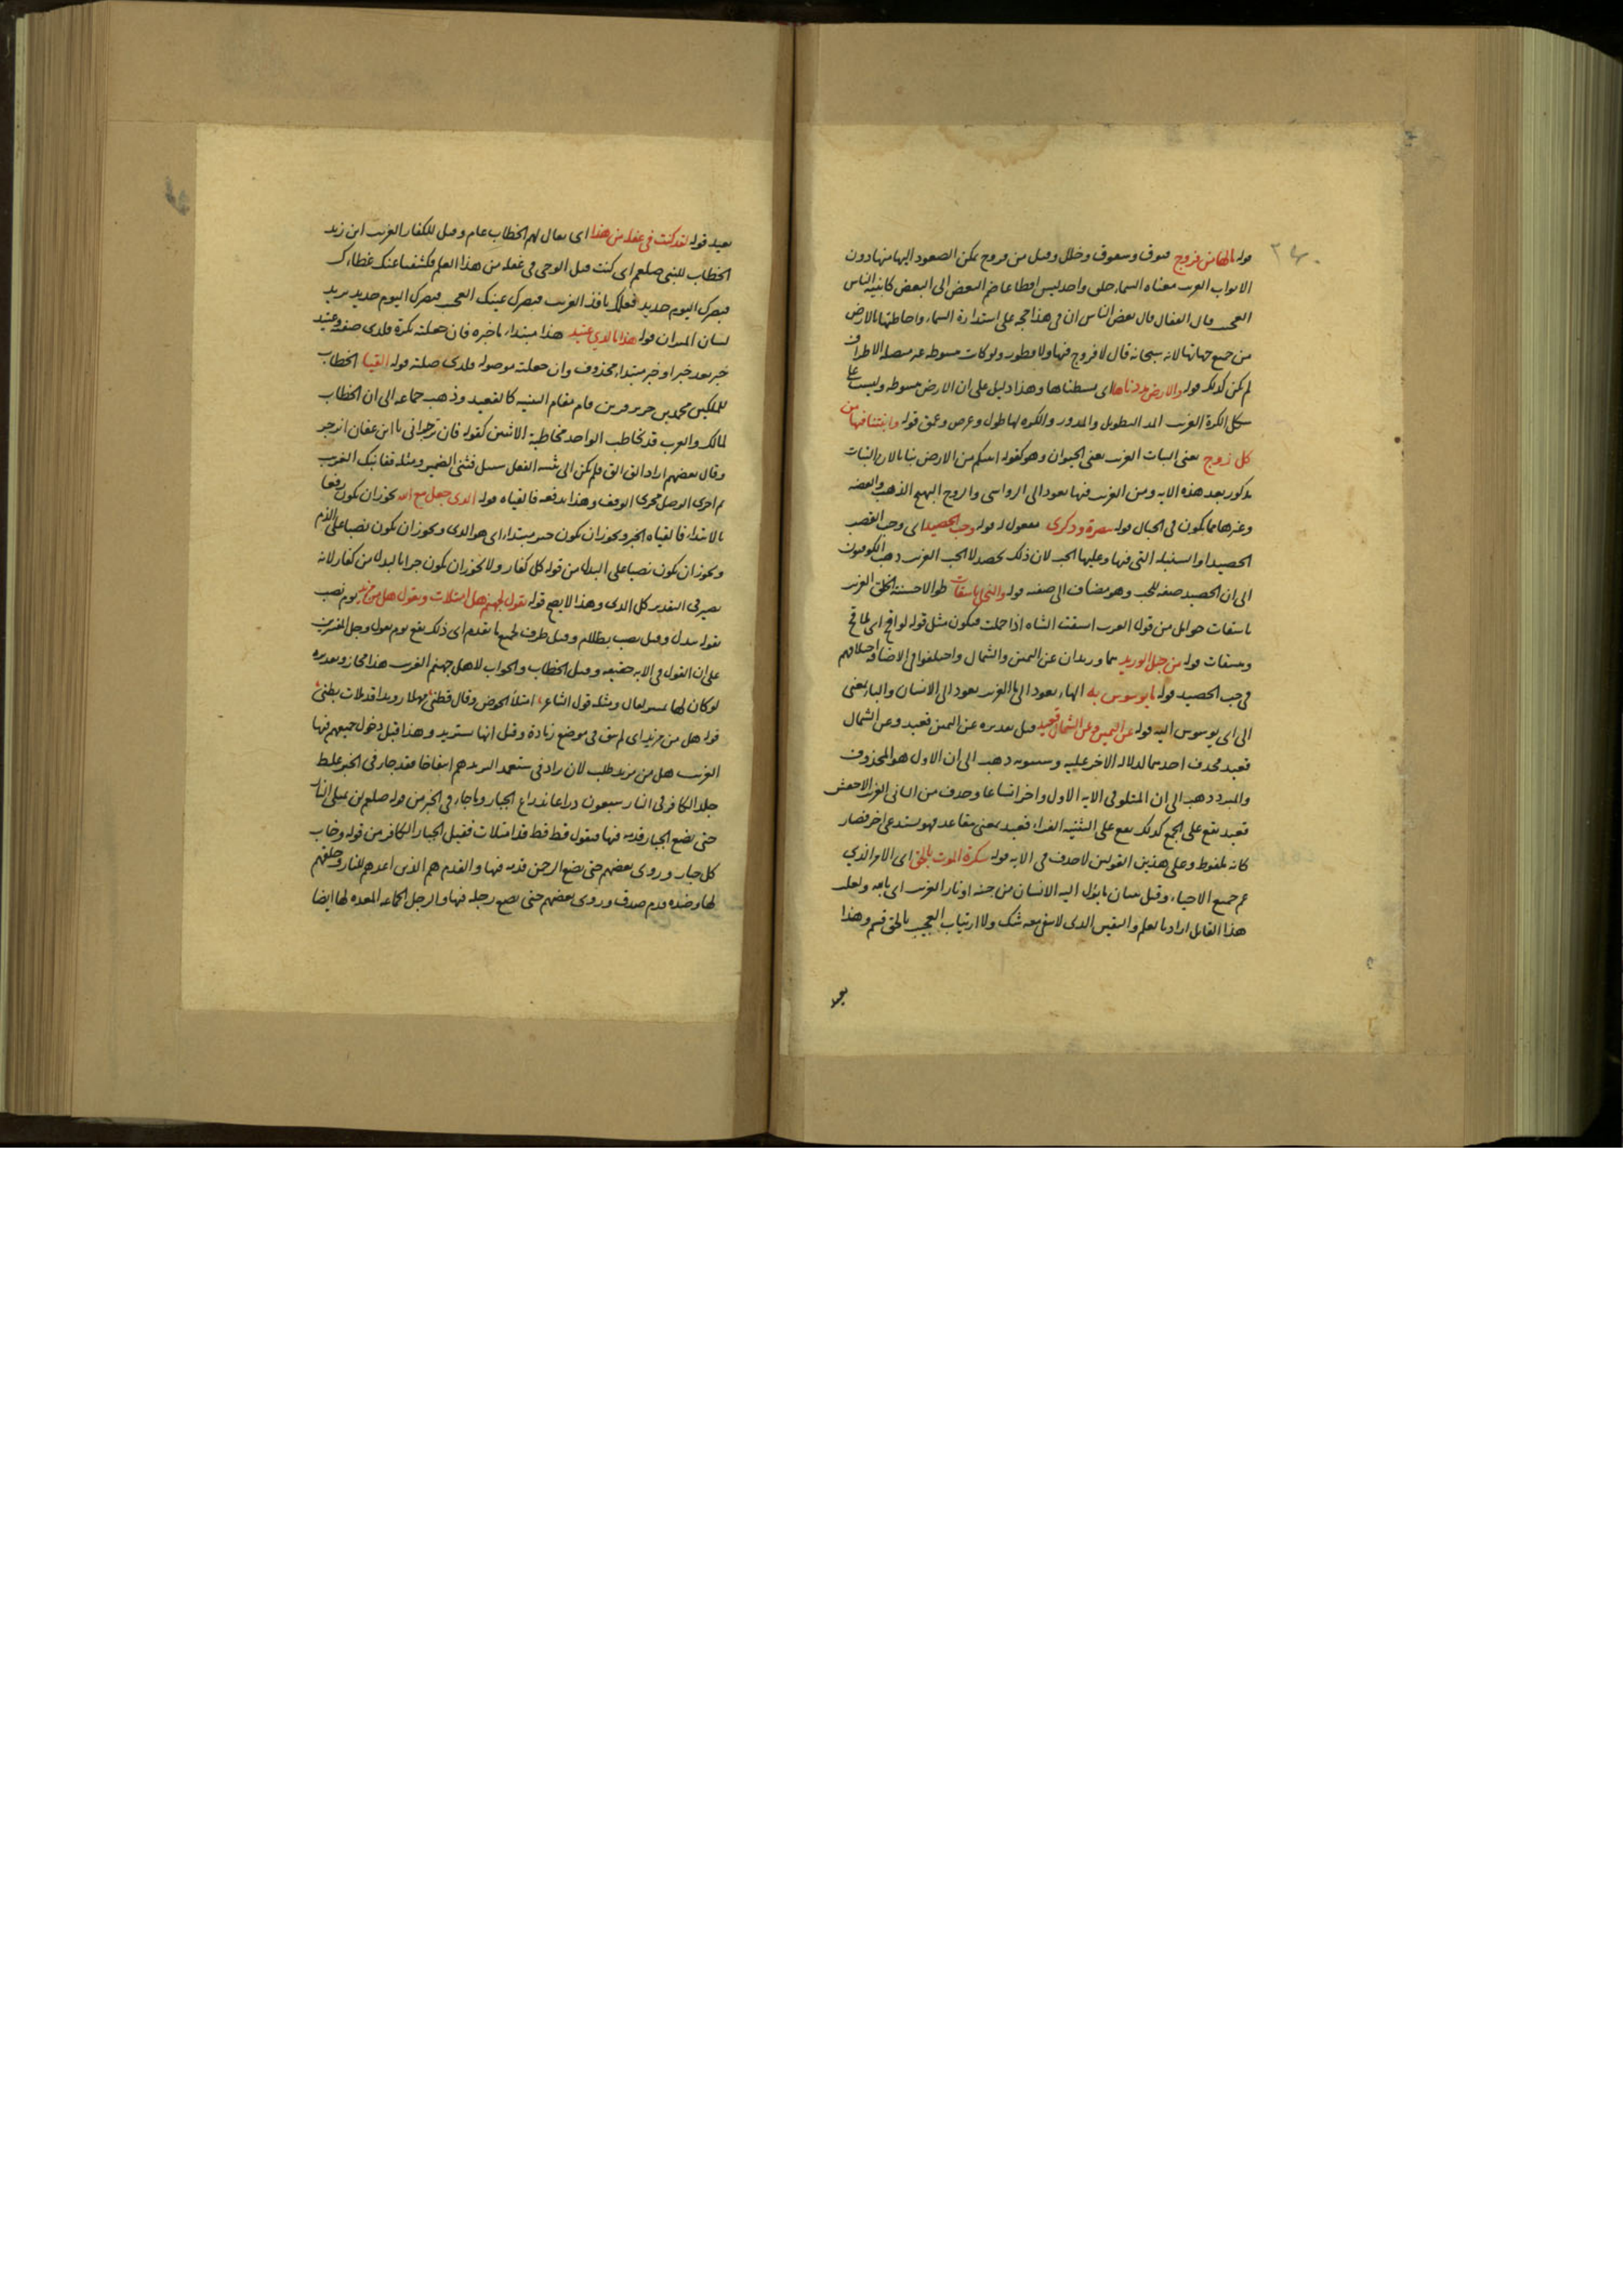 قوله مالها من فروج فتوق وشقوق وخلل وقيل من فروج يمكن الصعود اليها منها دون
الابواب الغريب معناه السماء خلق واحد ليس اقطاعا ضم البعض الى البعض كابنية الناس
العجيب قال القفال قال بعض الناس ان في هذا حجة على استدارة السماء واحاطتها بالارض
من جميع جهاتها لانه سبحانه قال لا فروج فيها ولا فطور ولو كانت مبسوطة غير متصلة الاطراف
لم يكن كذلك قوله والارض مددناها اى بسطناها وهذا دليل على ان الارض مبسوطة وليست على
شكل الكرة الغريب المد التطويل والمدور والكرة لها طول وعرض وعمق قوله وانبتنا فيها من
كل زوج يعنى النبات الغريب يعنى الحيوان وهو كقوله انبتكم من الارض نباتا لان النبات
مذكور بعد هذه الاية ومن الغريب فيها يعود الى الرواسى والزوج البهيج الذهب والفضة
وغيرهما مما يكون في الجبال قوله تبصرة وذكرى مفعول له قوله وحب الحصيد اى وحب القصب
الحصيد او السنبلة التى فيها وعليها الحب لان ذلك يحصد لا الحب الغريب ذهب الكوفيون
الى ان الحصيد صفة للحب وهو مضاف الى صفته قوله والنخل باسقات طوالا حسنة الخلق الغريب
باسقات حوامل من قول العرب ابسقت الشاة اذا حملت فيكون مثل قوله لواقح اى ملاقح
ومبسقات قوله من حبل الوريد هما وريدان عن اليمين والشمال واختلفوا في الاضافة اختلافهم
في حب الحصيد قوله ما توسوس به الهاء يعود الى ما الغريب يعود الى الانسان والباء بمعنى
الى اى يوسوس اليه قوله عن اليمين وعن الشمال قعيد قيل تقديره عن اليمين قعيد وعن الشمال
قعيد فحذف احدهما لدلالة الاخر عليه وسيبويه ذهب الى ان الاول هو المحذوف
والمبرد ذهب الى ان المتلو في الاية الاول واخر اتساعا وحذف من الثانى الغريب الاخفش
قعيد يقع على الجمع كذلك يقع على التثنية الفراء قعيد بمعنى مقاعد فهو يستدعى اخر فصار
كانه ملفوظ وعلى هذين القولين لا حذف في الاية قوله سكرة الموت بالحق اى الامر الذي
عم جميع الاحياء وقيل ببيان ما يؤل اليه الانسان من جنة او نار الغريب اى بالله ولعل
هذا القايل اراد بالعلم واليقين الذى لا يبقى معه شك ولا ارتياب العجيب بالحق قسم وهذا
بعيد
بعيد قوله لقد كنت في غفلة من هذا اى يقال لهم الخطاب عام وقيل للكفار الغريب ابن زيد
الخطاب للنبى صلعم اى كنت قبل الوحى في غفلة من هذا العلم فكشفنا عنك غطاءك
فبصرك اليوم حديد فعلمك نافذ الغريب فبصرك عينيك العجيب فبصرك اليوم حديد يريد
لسان الميزان قوله هذا ما لدي عتيد هذا مبتداء ما خبره فان جعلته نكرة فلدى صفة وعتيد
خبر بعد خبر او خبر مبتداء محذوف وان جعلته موصولة فلدى صلته قوله القيا الخطاب
للملكين محمد بن جرير قرين قام مقام التثنية كالقعيد وذهب جماعة الى ان الخطاب
لمالك والعرب قد تخاطب الواحد مخاطبة الاثنين كقوله فان تزجرانى يا ابن عفان انزجر
وقال بعضهم اراد الق الق فلم يكن الى تثنية الفعل سبيل فثنى الضمير ومثله قفا نبك الغريب
ثم اجرى الوصل مجرى الوقف وهذا يدفعه فالقياه قوله الذى جعل مع الله يجوز ان يكون رفعا
بالابتداء فالقياه الخبر ويجوز ان يكون خبر مبتداء اى هو الذى ويجوز ان يكون نصبا على الذم
ويجوز ان يكون نصبا على البدل من قوله كل كفار ولا يجوز ان يكون جرا بالبدل من كفار لانه
يصير في التقدير كل الذى وهذا لا يصح قوله يقول لجهنم هل امتلات وتقول هل من مزيد يوم نصب
بقوله يبدل وقيل نصب بظلام وقيل ظرف لجميع ما تقدم اى ذلك يقع يوم يقول وجل المفسرين
على ان القول في الاية حقيقة وقيل الخطاب والجواب لاهل جهنم الغريب هذا مجاز وتقديره
لو كان لها تمييز لقال ومثله قول الشاعر امتلأ الحوض وقال قطنى مهلا رويدا قد ملات بطنى
قوله هل من مزيد اى لم يبق في موضع زيادة وقيل انها تستزيد وهذا قبل دخول جميعهم فيها
الغريب هل من مزيد طلب لان يزاد في انتفاخا فقد جاء في الخبر غلظ
جلد الكافر في النار سبعون ذراعا بذراع الجبار وما جاء في الخبر من قوله صلعم لن تمتلى النار
حتى يضع الجبار قدمه فيها فتقول قط قط قد امتلات فقيل الجبار الكافر من قوله وخاب
كل جبار وروى بعضهم حتى يضع الرحمن قدمه فيها والقدم هم الذين اعدهم للنار وخلقهم
لها وضده قدم صدق وروى بعضهم حتى يضع رجله فيها والرجل الجماعة المعدة لها ايضا